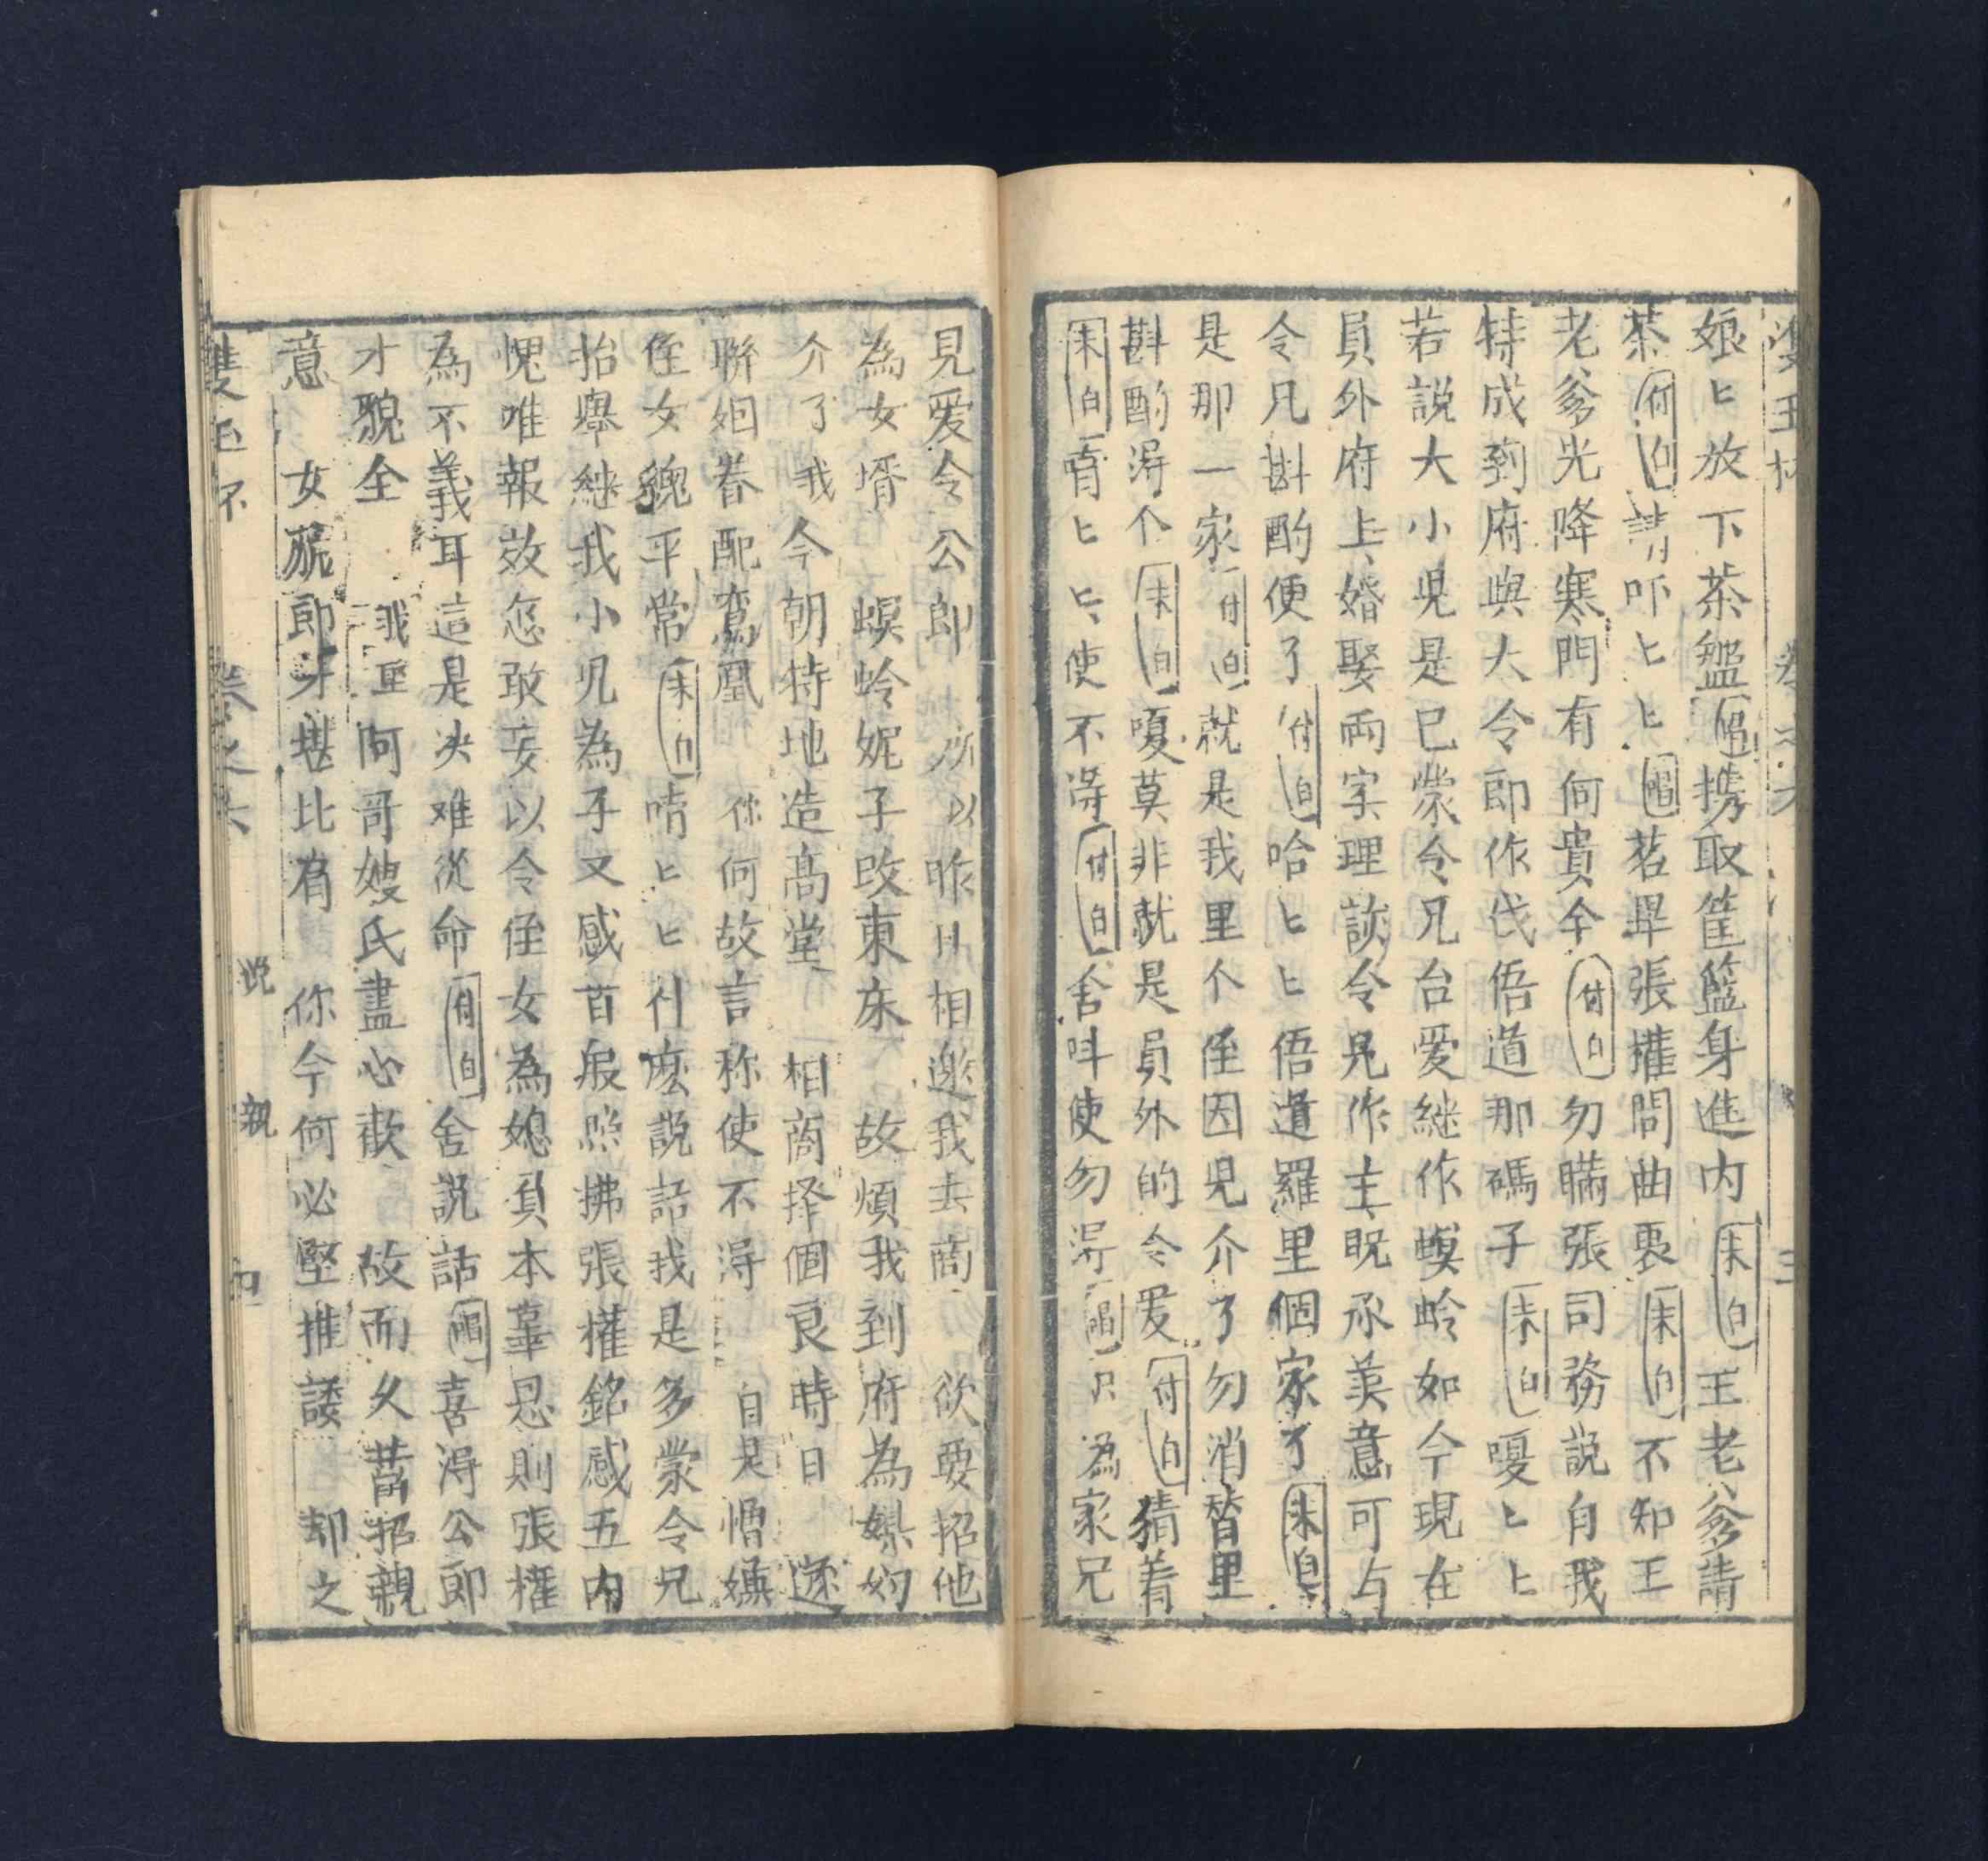 娘匕放下茶盤唱携取筐籃身進内末白王老爹請
茶付白請吓匕匕唱茗畢張權問曲衷末白不知王
老爹光降寒門有何貴全付白勿瞞張司務說自我
特成到府與大令郎作伐俉道那碼子末白嗄匕匕
若説大小児是已蒙令兄台爱継作螟蛉如今現在
員外府上婚娶兩字理該令兄作主既承美意可与
令兄斟酌便了付白哈匕匕俉道羅里個家了末白
是那一家付白就是我里个侄因児介了勿消替里
斟酌淂个末白嗄莫非就是員外的令爱付白猜着
末白唷匕匕使不淂付白舍呌使勿淂唱只為家兄
見爱令公郎 所以昨日相邀我去商 欲要招他
為女壻 螟蛉妮子改東床 故煩我到府為媒妁
介了我今朝特地造高堂 相商择個良時日 遂
聯姻眷配鸞凰 你何故言称使不淂 自是憎嫌
侄女貌平常末白唷匕匕什麽説話我是多蒙令兄
抬舉継我小児為子又感百般照拂張權銘感五内
愧唯報效怎敢妄以令侄女為媳負本辜恩則張權
為不義耳這是决难從命付白舍説話唱喜淂公郎
才貌全 我里阿哥嫂氏盡心歡 故而久蓄招親
意 女貌郎才堪比肩 你今何必堅推諉 却之
雙玉杯 卷之六 說親 四